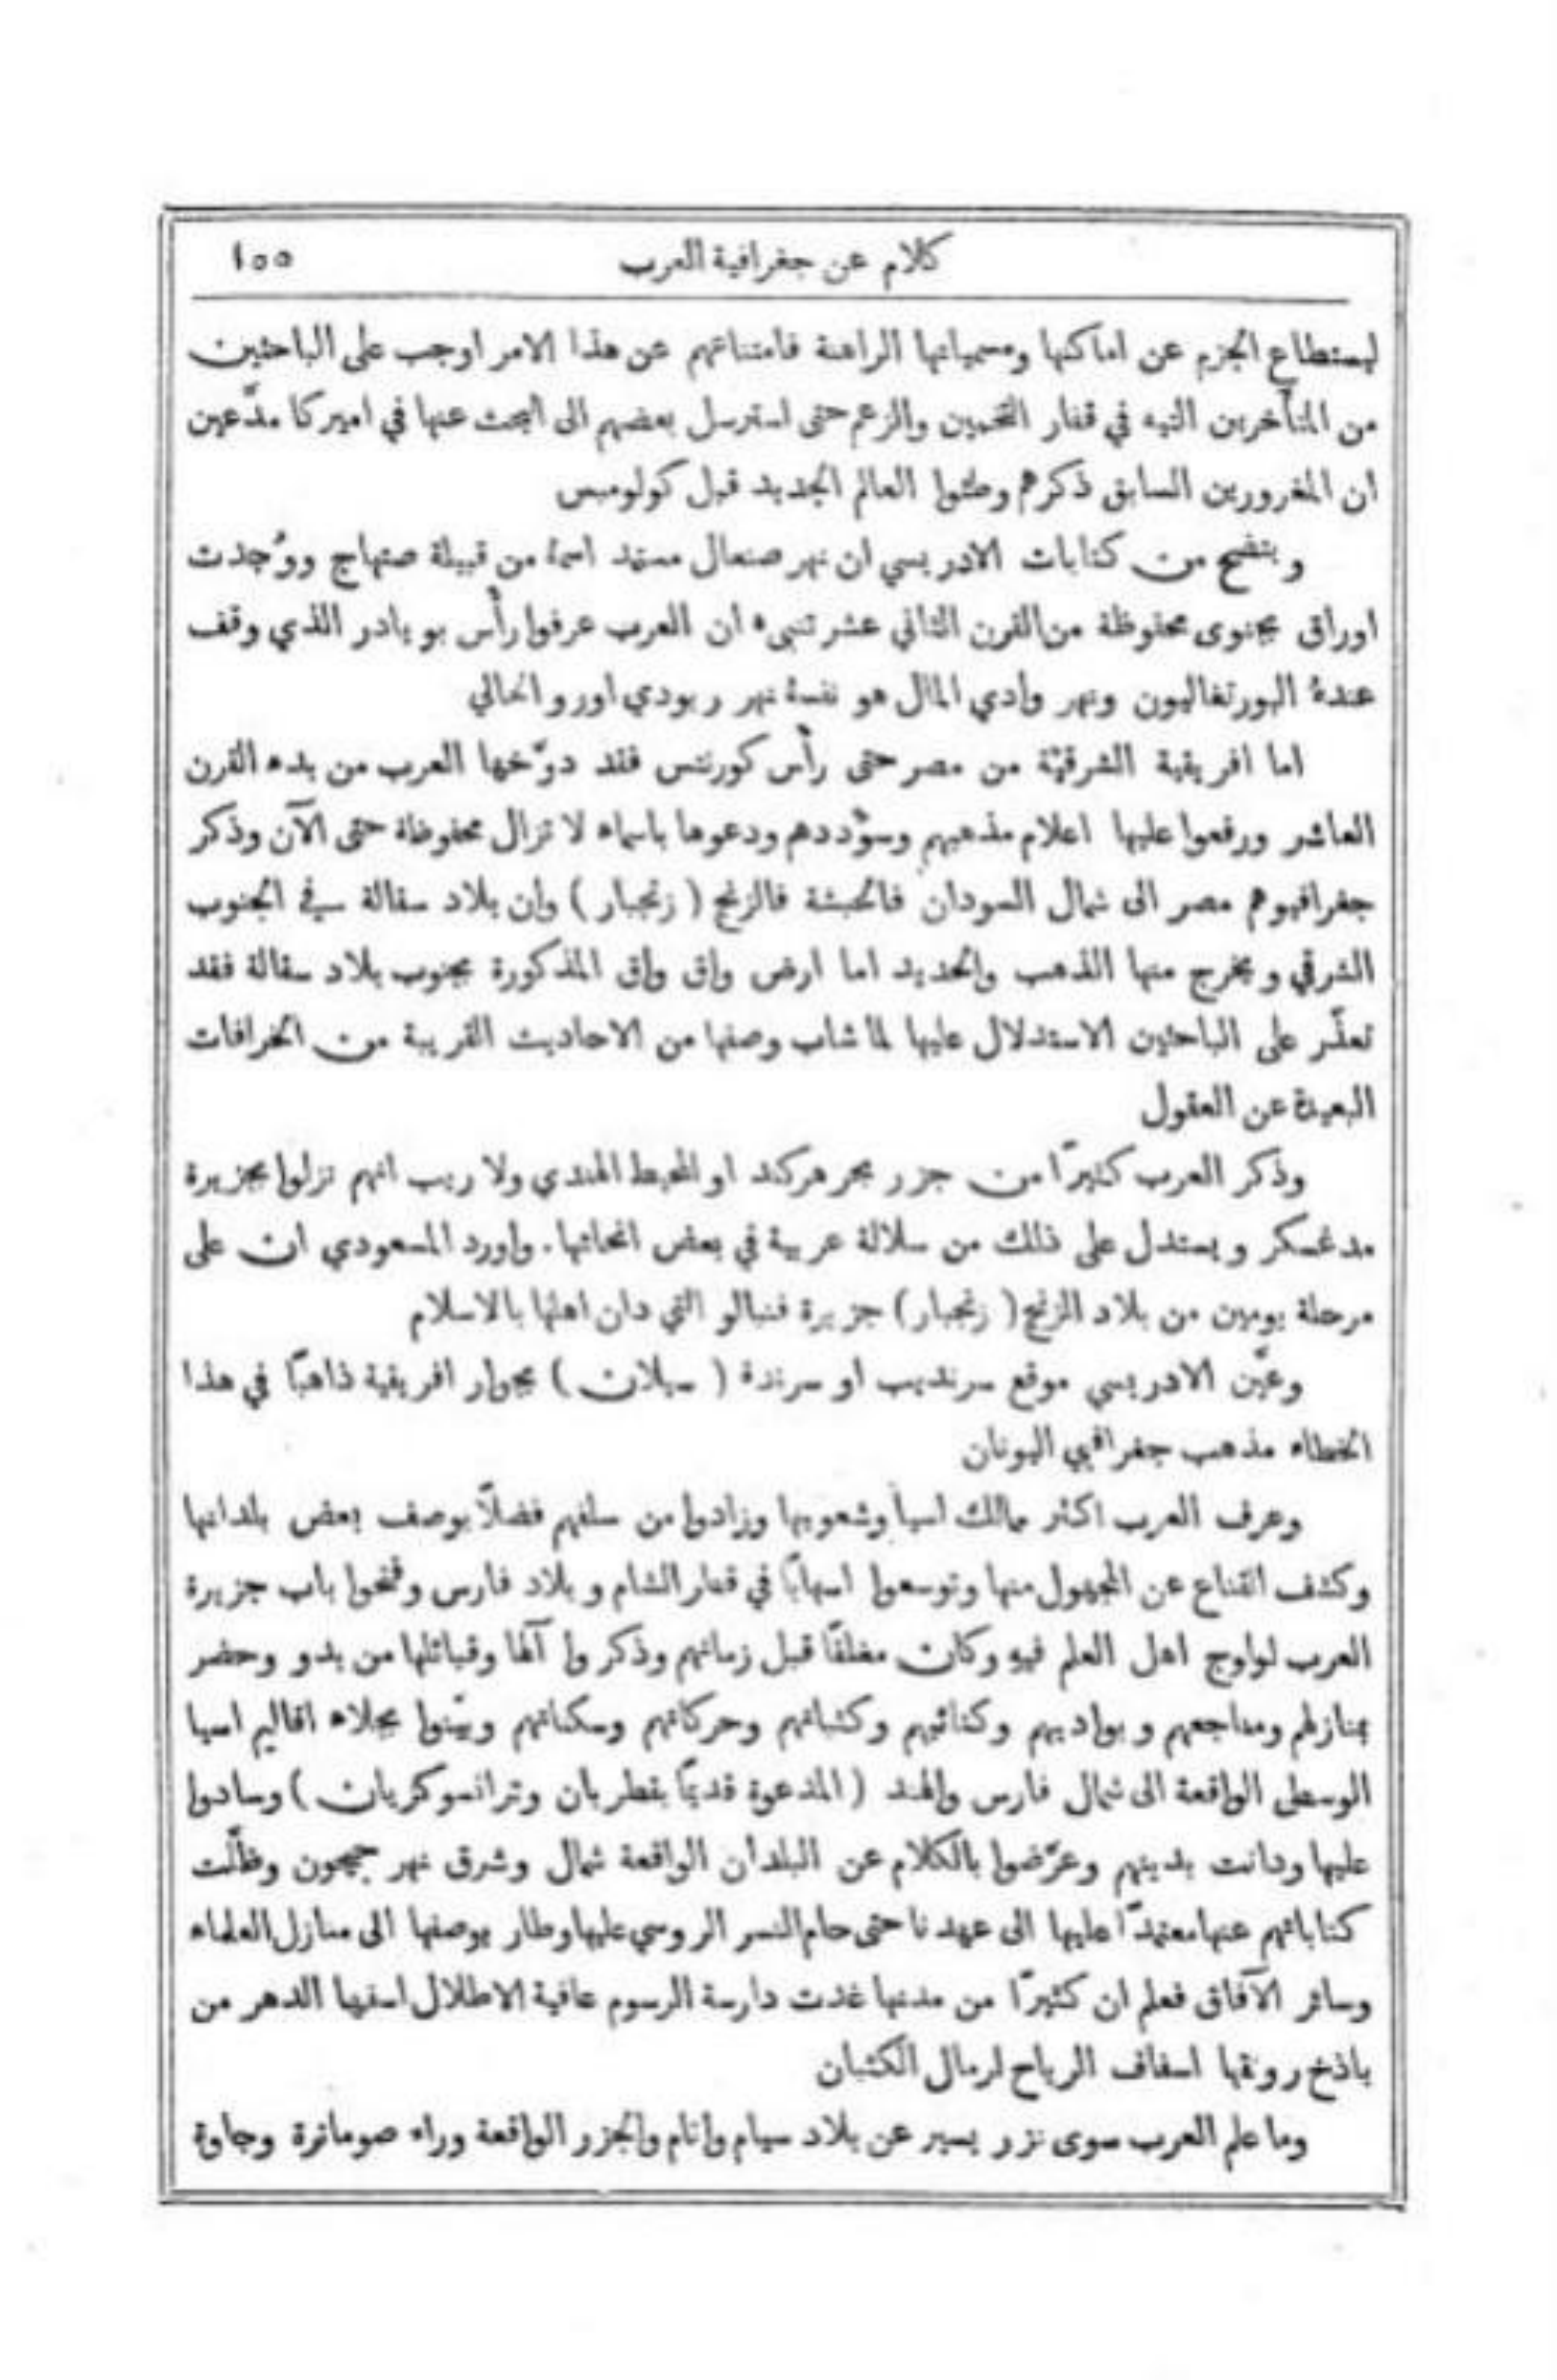 كلام عن جغرافية العرب ١٥٥
ليستطاع الجزم عن اماكنها ومسمياتها الراهنة فامتناعهم عن هذا الامر اوجب على الباحثين
من المتأخرين التيه في قفار التخمين والزعم حتى استرسل بعضهم الى البحث عنها في اميركا مدّعين
ان المغرورين السابق ذكرهم وطئوا العالم الجديد قبل كولومبس
ويتضح من كتابات الادريسي ان نهر صنعال مستمد اسمهُ من قبيلة صنهاج ووُجدت
اوراق بجنوى محفوظة من القرن الثاني عشر تنبىء ان العرب عرفوا رأس بويادر الذي وقف
عندهُ البورتغاليون ونهر وادي المال هو نفسهُ نهر ريودي اورو الحالي
اما افريقية الشرقيّة من مصر حتى رأس كورنتس فقد دوّخها العرب من بدء القرن
العاشر ورفعوا عليها اعلام مذهبهم وسؤددهم ودعوها باسماء لا تزال محفوظة حتى الآن وذكر
جغرافيوهم مصر الى شمال السودان فالحبشة فالزنج ( زنجبار ) وان بلاد سفالة في الجنوب
الشرقي ويخرج منها الذهب والحديد اما ارض واق واق المذكورة بجنوب بلاد سفالة فقد
تعذّر على الباحثين الاستدلال عليها لما شاب وصفها من الاحاديث القريبة من الخرافات
البعيدة عن العقول
وذكر العرب كثيرًا من جزر بحر هركند او المحيط الهندي ولا ريب انهم نزلوا بجزيرة
مدغسكر ويستدل على ذلك من سلالة عربية في بعض انحائها. واورد المسعودي ان على
مرحلة يومين من بلاد الزنج ( زنجبار ) جزيرة فنبالو التي دان اهلها بالاسلام
وعيّن الادريسي موقع سرنديب او سرندة ( سيلان ) بجوار افريقية ذاهبًا في هذا
الخطاء مذهب جغرافيي اليونان
وعرف العرب اكثر ممالك اسيا وشعوبها وزادوا من سلفهم فضلًا بوصف بعض بلدانها
وكشف القناع عن المجهول منها وتوسعوا اسهابًا في قفار الشام وبلاد فارس وفتحوا باب جزيرة
العرب لولوج اهل العلم فيهِ وكان مغلقًا قبل زمانهم وذكروا آلها وقبائلها من بدو وحضر
بمنازلهم ومناجعهم وبواديهم وكتائبهم وكثبانهم وحركاتهم وسكناتهم وبيّنوا بجلاء اقاليم اسيا
الوسطى الواقعة الى شمال فارس والهند ( المدعوة قديمًا بقطريان وترانسوكزيان ) وسادوا
عليها ودانت بدينهم وعرّضوا بالكلام عن البلدان الواقعة شمال وشرق نهر جيحون وظلّت
كتاباتهم عنها معتمدًا عليها الى عهدنا حتى حام النسر الروسي عليها وطار بوصفها الى منازل العلماء
وسائر الآفاق فعلم ان كثيرًا من مدنها غدت دارسة الرسوم عافية الاطلال اسفها الدهر من
باذخ رونقها اسفاف الرياح لرمال الكثبان
وما علم العرب سوى نزر يسير عن بلاد سيام وانام والجزر الواقعة وراء صوماترة وجاوة